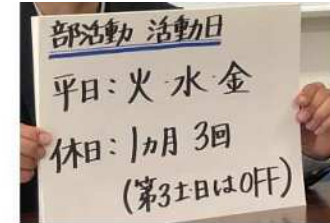 部活動 活動日
平日：火・水・金
休日：1ヵ月 3回
（第3土日はOFF）